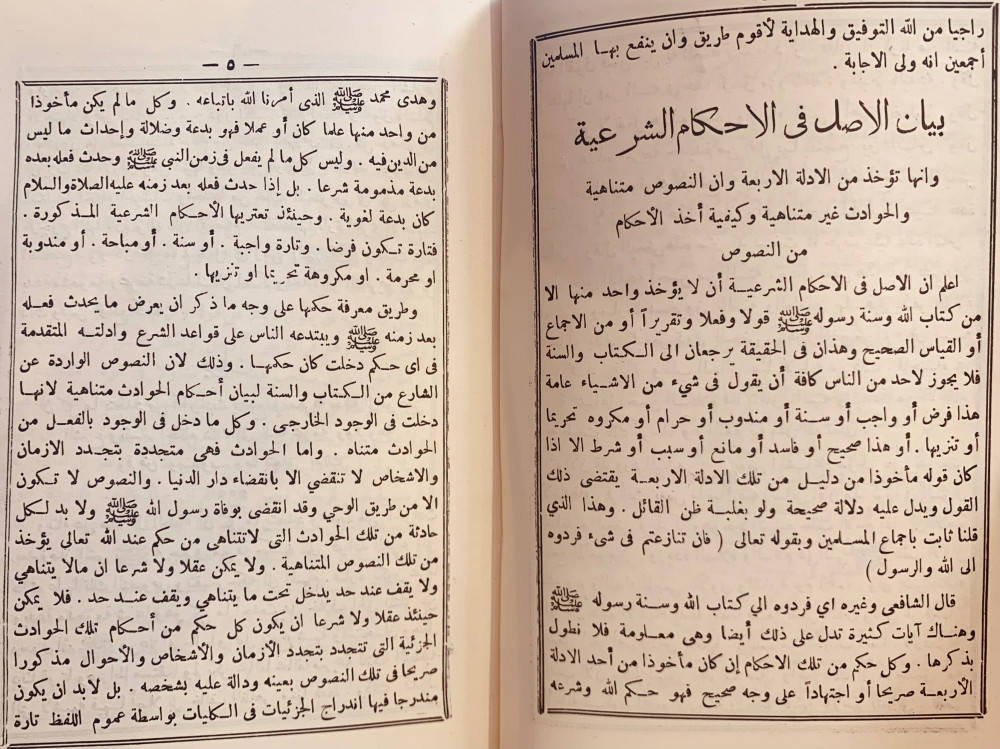 راجيا من الله التوفيق والهداية لأقوم طريق وان ينفع بهـا المسلمين
أجمعين انه ولى الاجابة .
بيان الاصل فى الاحكام الشرعية
وانها تؤخذ من الادلة الاربعة وان النصوص متناهية
والحوادث غير متناهية وكيفية أخذ الأحكام
من النصوص
اعلم ان الاصل فى الاحكام الشرعيـة أن لا يؤخذ واحد منها الا
من كتاب الله وسنة رسوله ﷺ قولا وفعلا وتقريراً أو من الاجماع
أو القياس الصحيح وهذان فى الحقيقة يرجعان الى الـكتاب والسنة
فلا يجوز لاحد من الناس كافة أن يقول فى شيء من الاشـياء عامة
هذا فرض أو واجب أو سـنة أو مندوب أو حرام أو مكروه تحريما
أو تنزيها . أو هذا صحيح أو فاسد أو مانع أو سبب أو شرط الا اذا
كان قوله مأخوذا من دليـل من تلك الادلة الاربعـة يقتضى ذلك
القول ويدل عليه دلالة صحيحة ولو بغلبـة ظن القائل . وهذا الذي
قلنا ثابت باجماع المسـلمين وبقوله تعالى ( فان تنازعتم فى شىء فردوه
الى الله والرسول )
قال الشافعى وغيره اي فردوه الي كتاب الله وسنة رسوله ﷺ
وهناك آيات كـثيرة تدل على ذلك أيضا وهى معـلومة فلا نطول
بذكرها . وكل حكم من تلك الاحكام إن كان مأخوذا من أحد الادلة
الأربعـة صريحا أو اجتهاداً على وجه صحيح فهو حكـم الله وشرعه
— ٥ —
وهدى محمد ﷺ الذى أمرنا الله باتباعه . وكل مالم يكن مأخوذا
من واحد منها علما كان أو عملا فهو بدعة وضلالة وإحداث ما ليس
من الدين فيه . وليس كل ما لم يفعل فى زمن النبي ﷺ وحدث فعله بعده
بدعة مذمومة شرعا . بل إذا حدث فعله بعد زمنه عليه الصلاة والسلام
كان بدعة لغوية . وحينئذ تعتريها الأحـكام الشرعية المـذكورة .
فتارة تـكون فرضا . وتارة واجبة . أو سنة . أو مباحة . أو مندوبة
او محرمة . او مكروهة تحريما او تنزيها .
وطريق معرفة حكمها على وجه ما ذكر ان يعرض ما يحدث فعـله
بعد زمنه ﷺ ويبتدعه الناس على قواعد الشرع وادلتـه المتقدمة
فى اى حـكم دخلت كان حكمهـا . وذلك لان النصوص الواردة عن
الشارع من الـكتاب والسنة لبيان أحـكام الحوادث متناهية لانهـا
دخلت فى الوجود الخارجى . وكل ما دخل فى الوجود بالفعـل من
الحوادث متناه . واما الحوادث فهى متجددة بتجـدد الازمان
والاشخاص لا تنقضي الا بانقضاء دار الدنيا . والنصوص لا تـكون
الا من طريق الوحي وقد انقضى بوفاة رسول الله ﷺ ولا بد لـكل
حادثة من تلك الحوادث التى لاتتناهى من حكم عند الله تعالى يؤخذ
من تلك النصوص المتناهية . ولا يمكن عقلا ولا شرعا ان مالا يتناهي
ولا يقف عند حد يدخل تحت ما يتناهي ويقف عنـد حد . فلا يمكن
حينئذ عقلا ولا شرعا ان يكون كل حكم من أحـكام تلك الحوادث
الجزئية التى تتجدد بتجدد الأزمان والأشخاص والأحوال مذكورا
صريحا فى تلك النصوص بعينه ودالة عليه بشخصه . بل لابد ان يكون
مندرجا فيها اندراج الجزئيات فى الـكليات بواسطة عموم اللفظ تارة